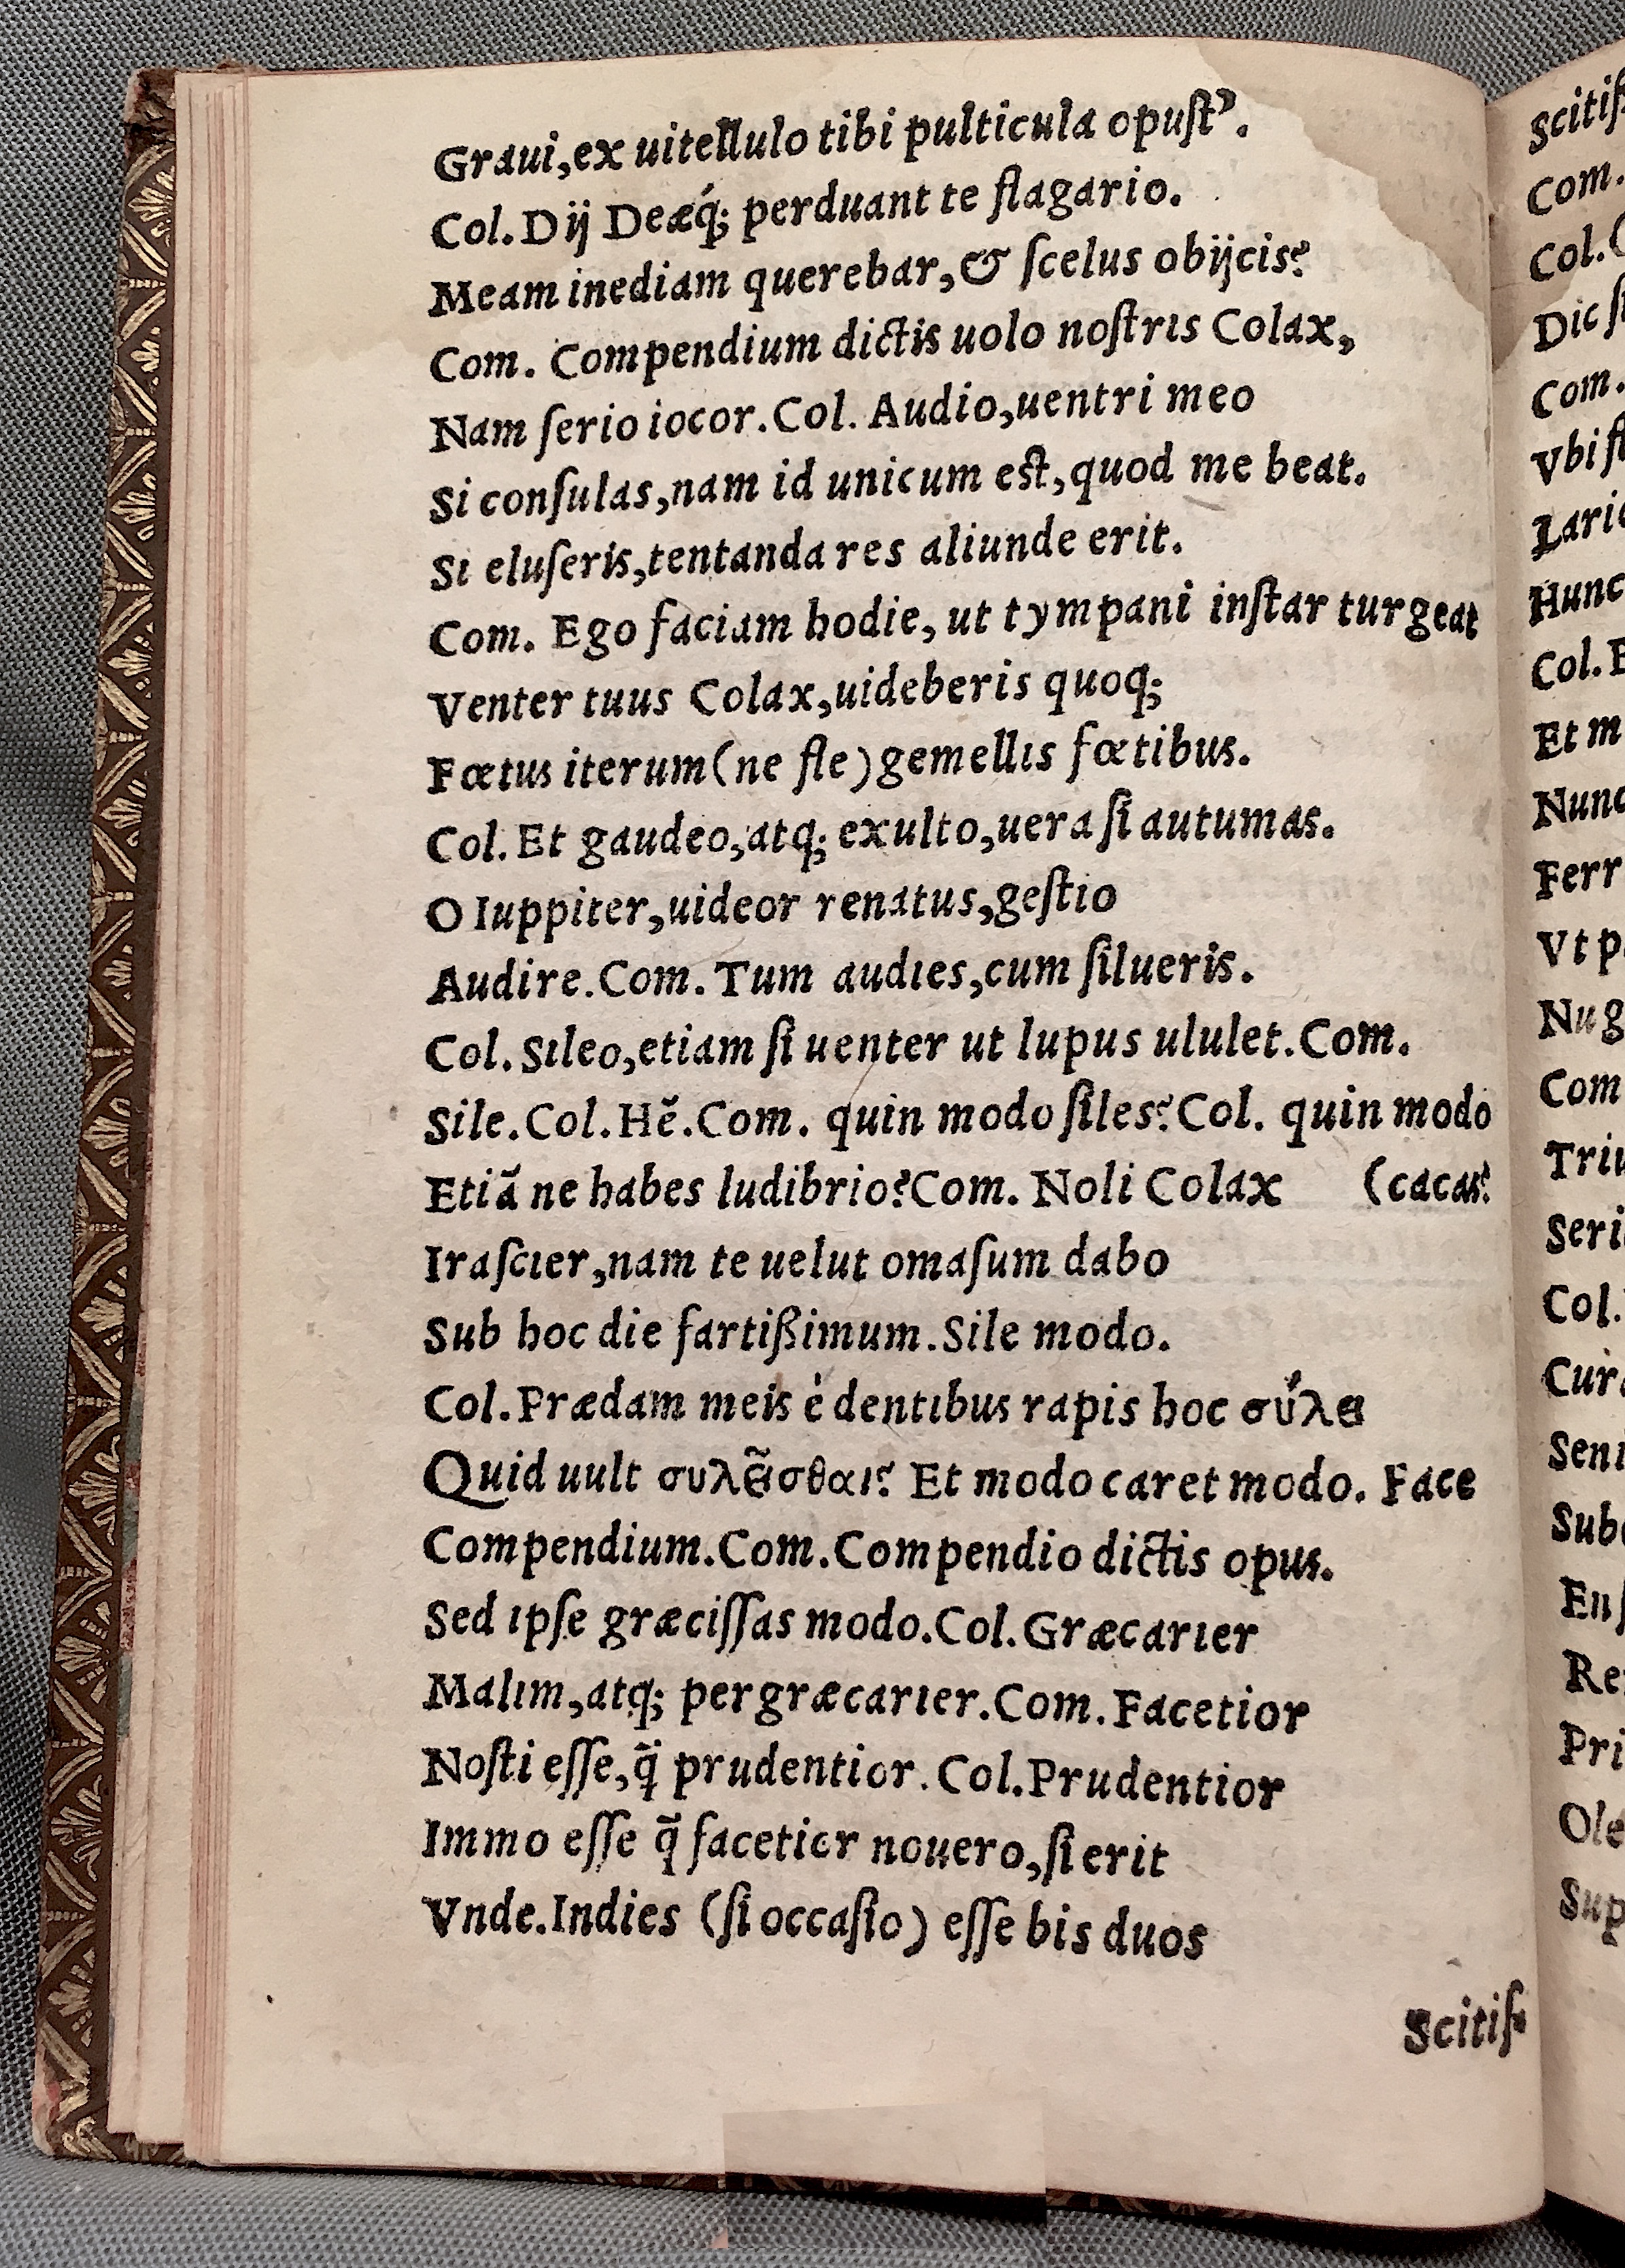 Graui,ex uitellulo tibi pulticula opuſt᾽.
Col.Dij Deæq́; perduant te flagario.
Meam inediam querebar,& ſcelus obijcis?
Com. Compendium dictis uolo noſtris Colax,
Nam ſerio iocor.Col. Audio,uentri meo
Si conſulas,nam id unicum eſt,quod me beat.
Si eluſeris,tentanda res aliunde erit.
Com. Ego faciam hodie, ut tympani inſtar turgeat
Venter tuus Colax,uideberis quoq;
Fœtus iterum(ne fle)gemellis fœtibus.
Col.Et gaudeo,atq; exulto,uera ſi autumas.
O Iuppiter,uideor renatus,geſtio
Audire.Com.Tum audies,cum ſilueris.
Col.Sileo,etiam ſi uenter ut lupus ululet.Com.
Sile.Col.Hẽ.Com. quin modo ſiles?Col. quin modo
Etiã ne habes ludibrio?Com. Noli Colax (cacas?
Iraſcier,nam te uelut omaſum dabo
Sub hoc die fartißimum.Sile modo.
Col.Prædam meis è dentibus rapis hoc σύλει
Quid uult συλεῖσθαι? Et modo caret modo. Face
Compendium.Com.Compendio dictis opus.
Sed ipſe græciſſas modo.Col.Græcarier
Malim,atq; pergræcarier.Com.Facetior
Noſti eſſe,q̃ prudentior.Col.Prudentior
Immo eſſe q̃ facetior nouero,ſi erit
Vnde.Indies (ſi occaſio) eſſe bis duos
Scitiſ-
Com.
Col.
Dic
Com.
Vbi
Hunc
Col.
Et
Vt
Com
Col.